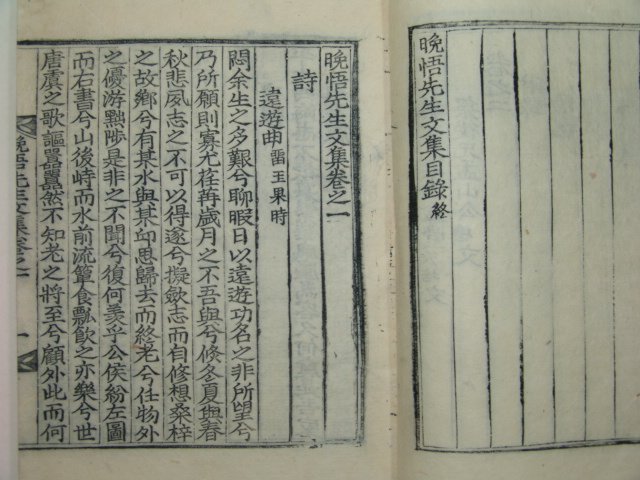 晩悟先生文集目錄終
晩悟先生文集卷之一
詩
遠遊曲 畱玉果時
悶余生之多艱兮聊暇日以遠遊功名之非所望兮
乃所願則寡尤荏苒歲月之不吾與兮倏冬夏與春
秋悲夙志之不可以得遂兮擬斂志而自修想桑梓
之故鄕兮有某水與某丘思歸去而終老兮任物外
之優游黜陟是非之不聞兮復何羡乎公侯紛左圖
而右書兮山後峙而水前流簞食瓢飮之亦樂兮世
唐虞之歌謳囂囂然不知老之將至兮顧外此而何
晩悟先生文集卷之一
一